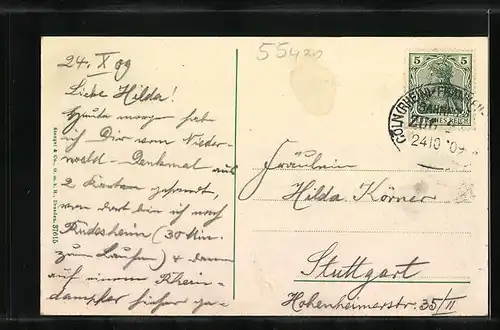 24. X 09
Liebe Hilda!
Heute morgen hab
ich Dir vom Nieder-
wald-Denkmal aus
2 Karten gesandt,
von dort bin ich nach
Rüdesheim (30 Min.
zum Laufen) & dann
auf einem Rhein-
dampfer hieher ge-
55420
5 5
DEUTSCHES REICH
CÖLN (RHEIN)-FRANKFURT
BAHNPOST
ZUG
24 10 09
Fräulein
Hilda Körner
Stuttgart
Hohenheimerstr. 35/II
37615